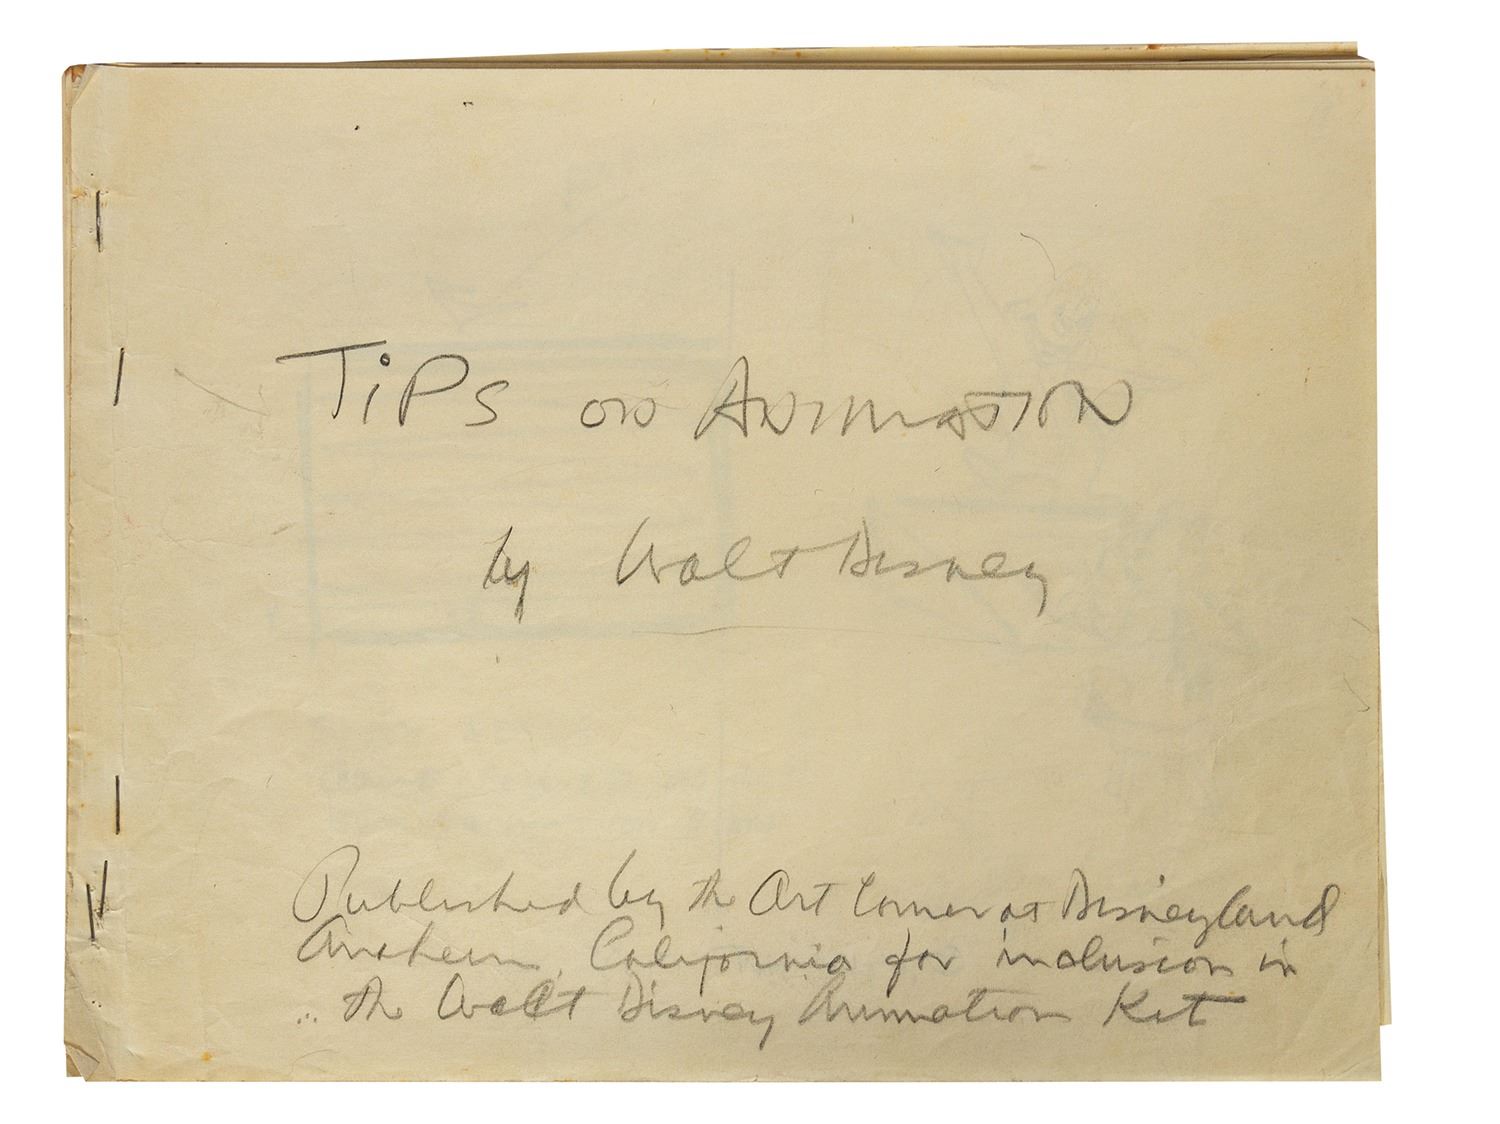 TiPS ON ANIMATION
by Walt Disney
Published by the Art Corner at Disneyland
Anaheim, California for inclusion in
the Walt Disney Animation Kit